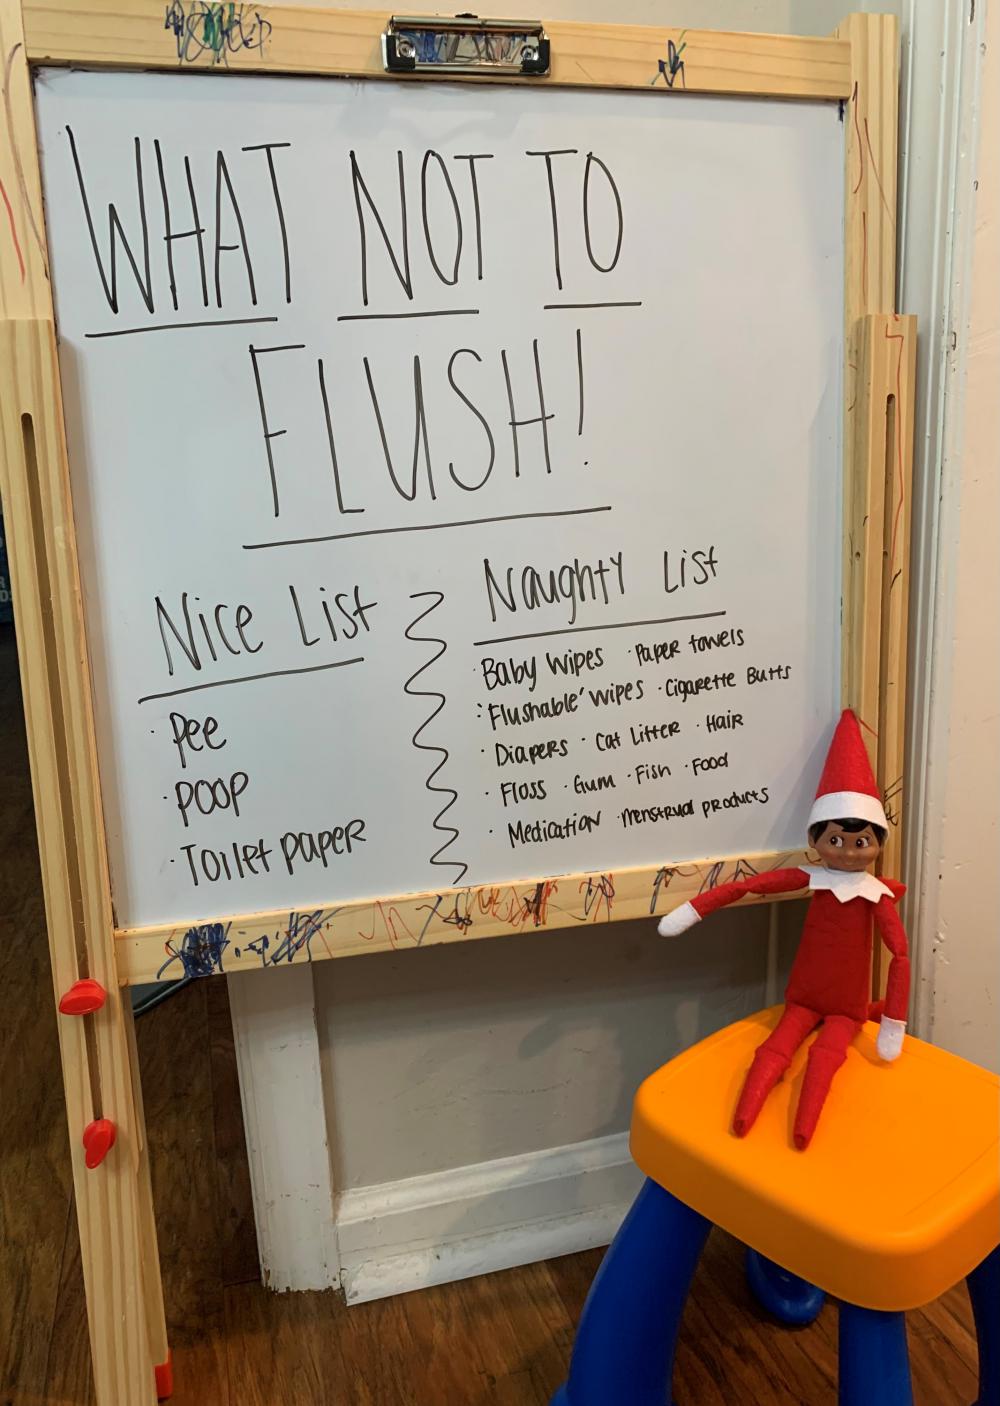 WHAT NOT TO
FLUSH!
Nice List
· Pee
· POOP
· Toilet paper
Naughty List
· Baby wipes · Paper towels
· 'Flushable' wipes · Cigarette Butts
· Diapers · Cat Litter · Hair
· Floss · Gum · Fish · Food
· Medication · menstrual products